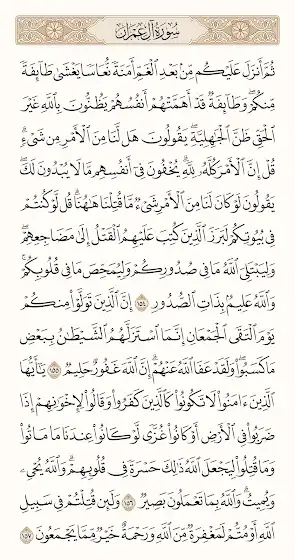 سُورَةُ آلِ عِمْرَان
ثُمَّ أَنزَلَ عَلَيْكُم مِّنۢ بَعْدِ ٱلْغَمِّ أَمَنَةً نُّعَاسًا يَغْشَىٰ طَآئِفَةً
مِّنكُمْ ۖ وَطَآئِفَةٌ قَدْ أَهَمَّتْهُمْ أَنفُسُهُمْ يَظُنُّونَ بِٱللَّهِ غَيْرَ
ٱلْحَقِّ ظَنَّ ٱلْجَٰهِلِيَّةِ ۖ يَقُولُونَ هَل لَّنَا مِنَ ٱلْأَمْرِ مِن شَىْءٍ ۗ
قُلْ إِنَّ ٱلْأَمْرَ كُلَّهُۥ لِلَّهِ ۗ يُخْفُونَ فِىٓ أَنفُسِهِم مَّا لَا يُبْدُونَ لَكَ ۖ
يَقُولُونَ لَوْ كَانَ لَنَا مِنَ ٱلْأَمْرِ شَىْءٌ مَّا قُتِلْنَا هَٰهُنَا ۗ قُل لَّوْ كُنتُمْ
فِى بُيُوتِكُمْ لَبَرَزَ ٱلَّذِينَ كُتِبَ عَلَيْهِمُ ٱلْقَتْلُ إِلَىٰ مَضَاجِعِهِمْ ۖ
وَلِيَبْتَلِىَ ٱللَّهُ مَا فِى صُدُورِكُمْ وَلِيُمَحِّصَ مَا فِى قُلُوبِكُمْ ۗ
وَٱللَّهُ عَلِيمٌۢ بِذَاتِ ٱلصُّدُورِ ١٥٤ إِنَّ ٱلَّذِينَ تَوَلَّوْا۟ مِنكُمْ
يَوْمَ ٱلْتَقَى ٱلْجَمْعَانِ إِنَّمَا ٱسْتَزَلَّهُمُ ٱلشَّيْطَٰنُ بِبَعْضِ
مَا كَسَبُوا۟ ۖ وَلَقَدْ عَفَا ٱللَّهُ عَنْهُمْ ۗ إِنَّ ٱللَّهَ غَفُورٌ حَلِيمٌ ١٥٥ يَٰٓأَيُّهَا
ٱلَّذِينَ ءَامَنُوا۟ لَا تَكُونُوا۟ كَٱلَّذِينَ كَفَرُوا۟ وَقَالُوا۟ لِإِخْوَٰنِهِمْ إِذَا
ضَرَبُوا۟ فِى ٱلْأَرْضِ أَوْ كَانُوا۟ غُزًّى لَّوْ كَانُوا۟ عِندَنَا مَا مَاتُوا۟
وَمَا قُتِلُوا۟ لِيَجْعَلَ ٱللَّهُ ذَٰلِكَ حَسْرَةً فِى قُلُوبِهِمْ ۗ وَٱللَّهُ يُحْىِۦ
وَيُمِيتُ ۗ وَٱللَّهُ بِمَا تَعْمَلُونَ بَصِيرٌ ١٥٦ وَلَئِن قُتِلْتُمْ فِى سَبِيلِ
ٱللَّهِ أَوْ مُتُّمْ لَمَغْفِرَةٌ مِّنَ ٱللَّهِ وَرَحْمَةٌ خَيْرٌ مِّمَّا يَجْمَعُونَ ١٥٧